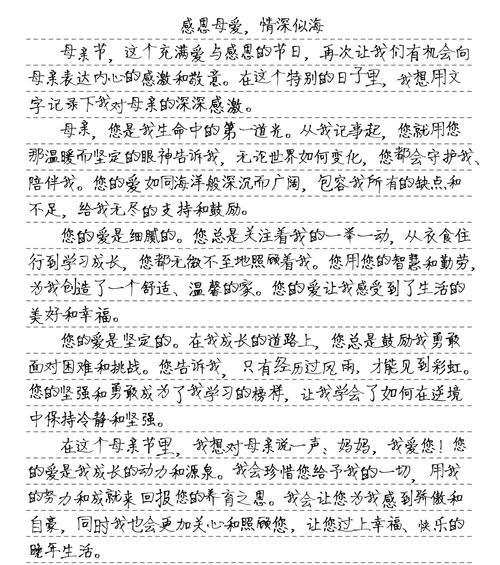 感恩母爱，情深似海
母亲节，这个充满爱与感恩的节日，再次让我们有机会向
母亲表达内心的感激和敬意。在这个特别的日子里，我想用文
字记录下我对母亲的深深感激。
母亲，您是我生命中的第一道光。从我记事起，您就用您
那温暖而坚定的眼神告诉我，无论世界如何变化，您都会守护我、
陪伴我。您的爱如同海洋般深沉而广阔，包容我所有的缺点和
不足，给我无尽的支持和鼓励。
您的爱是细腻的。您总是关注着我的一举一动，从衣食住
行到学习成长，您都无微不至地照顾着我。您用您的智慧和勤劳，
为我创造了一个舒适、温馨的家。您的爱让我感受到了生活的
美好和幸福。
您的爱是坚定的。在我成长的道路上，您总是鼓励我勇敢
面对困难和挑战。您告诉我，只有经历过风雨，才能见到彩虹。
您的坚强和勇敢成为了我学习的榜样，让我学会了如何在逆境
中保持冷静和坚强。
在这个母亲节里，我想对母亲说一声、妈妈，我爱您！您
的爱是我成长的动力和源泉。我会珍惜您给予我的一切，用我
的努力和成就来回报您的养育之恩。我会让您为我感到骄傲和
自豪，同时我也会更加关心和照顾您，让您过上幸福、快乐的
晚年生活。